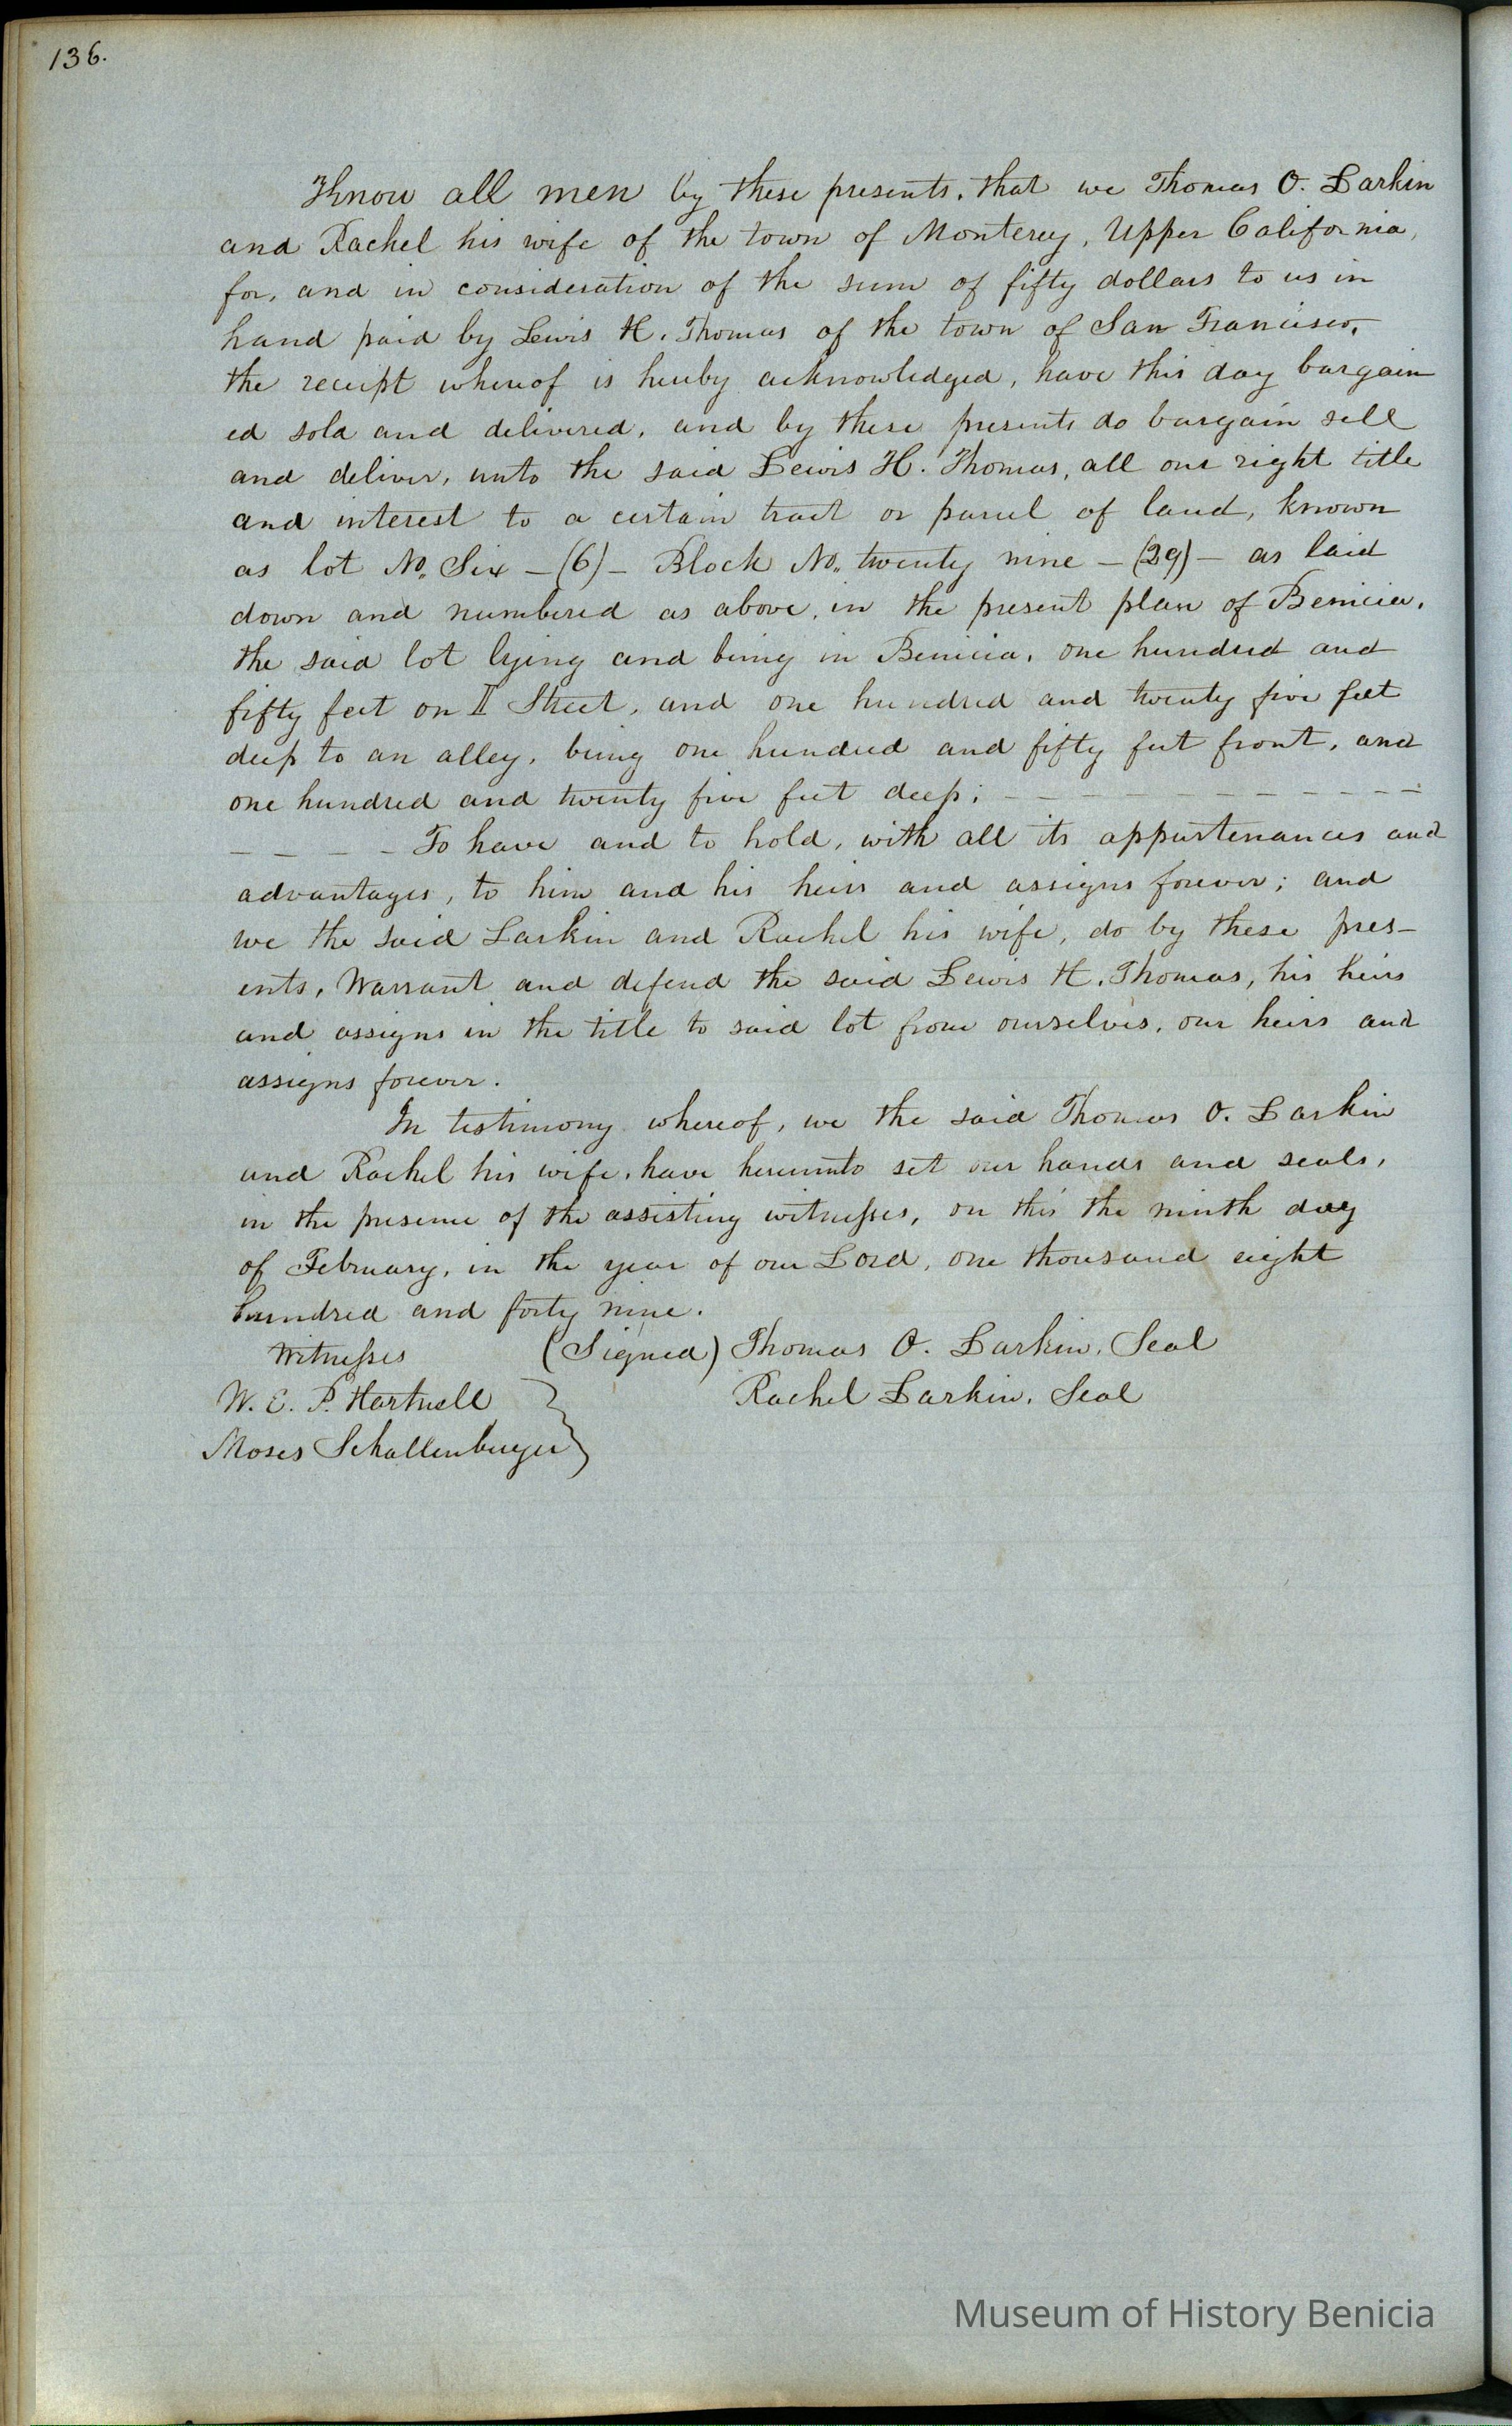 136.
Know all men by these presents, that we Thomas O. Larkin
and Rachel his wife of the town of Monterey, Upper California,
for, and in consideration of the sum of fifty dollars to us in
hand paid by Lewis H. Thomas of the town of San Francisco,
the receipt whereof is hereby acknowledged, have this day bargain
ed sold and delivered, and by these presents do bargain sell
and deliver, unto the said Lewis H. Thomas, all our right title
and interest to a certain tract or parcel of land, known
as lot No. Six – (6) – Block No. twenty nine – (29) – as laid
down and numbered as above, in the present plan of Benicia,
the said lot lying and being in Benicia, one hundred and
fifty feet on I Street, and one hundred and twenty five feet
deep to an alley, being one hundred and fifty feet front, and
one hundred and twenty five feet deep; – – – – – – – – – –
– – – – To have and to hold, with all its appurtenances and
advantages, to him and his heirs and assigns forever; and
we the said Larkin and Rachel his wife, do by these pres–
ents, Warrant and defend the said Lewis H. Thomas, his heirs
and assigns in the title to said lot from ourselves, our heirs and
assigns forever.
In testimony whereof, we the said Thomas O. Larkin
and Rachel his wife, have hereunto set our hands and seals,
in the presence of the assisting witnesses, on this the ninth day
of February, in the year of our Lord, one thousand eight
hundred and forty nine.
Witnesses (Signed) Thomas O. Larkin, Seal
W. E. P. Hartnell Rachel Larkin, Seal
Moses Schallenberger
Museum of History Benicia